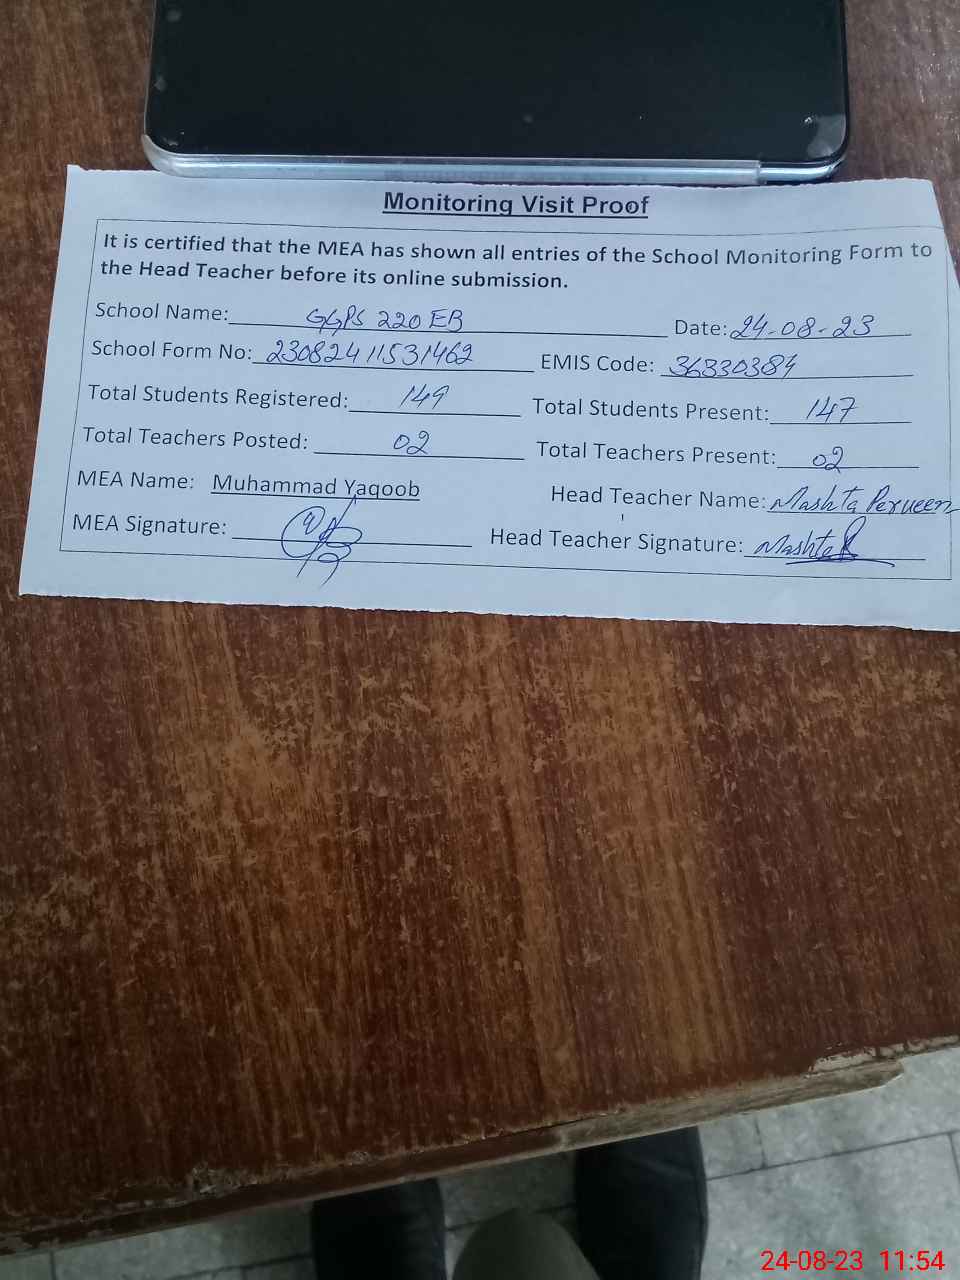 Monitoring Visit Proof
It is certified that the MEA has shown all entries of the School Monitoring Form to
the Head Teacher before its online submission.
School Name: GGPS 220 EB Date: 24-08-23
School Form No: 23082411531462 EMIS Code: 36330384
Total Students Registered: 149 Total Students Present: 147
Total Teachers Posted: 02 Total Teachers Present: 02
MEA Name: Muhammad Yaqoob Head Teacher Name: Mashta Perveen
MEA Signature: Head Teacher Signature: Mashta
24-08-23 11:54